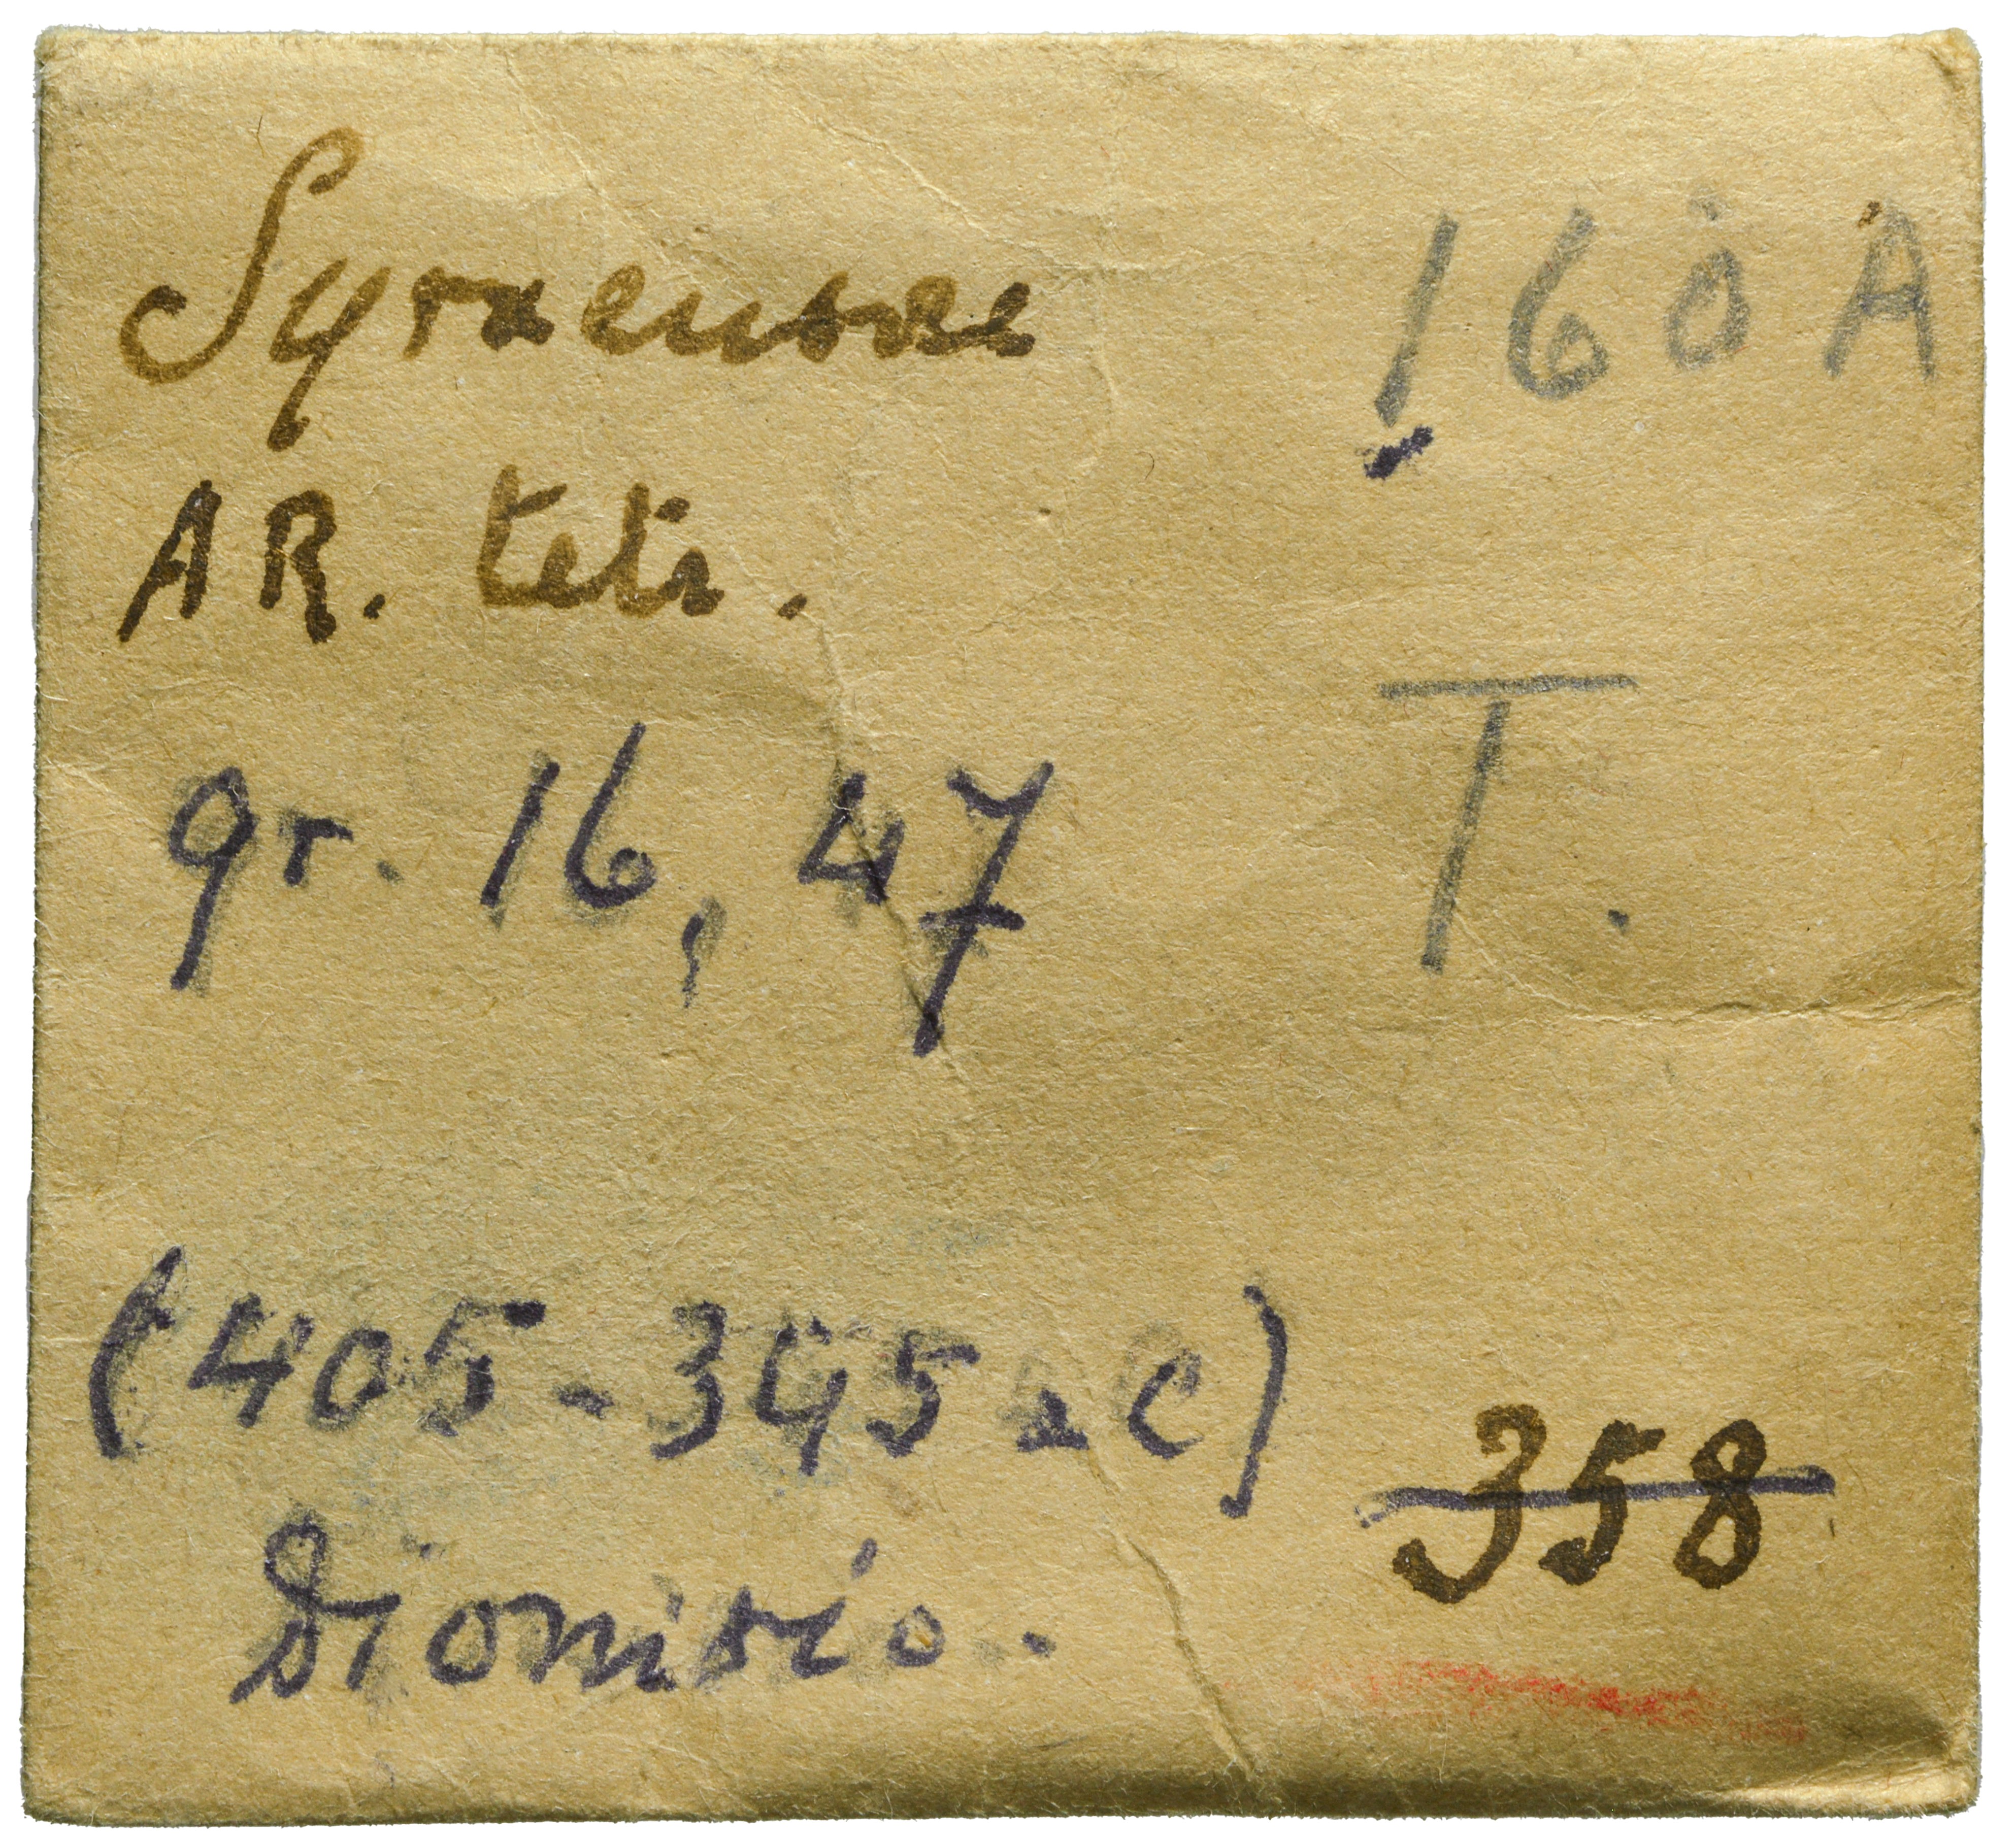 Syracusae
160 A
AR. tetr.
gr. 16,47
T.
(405-345 a C)
358
Dionisio.